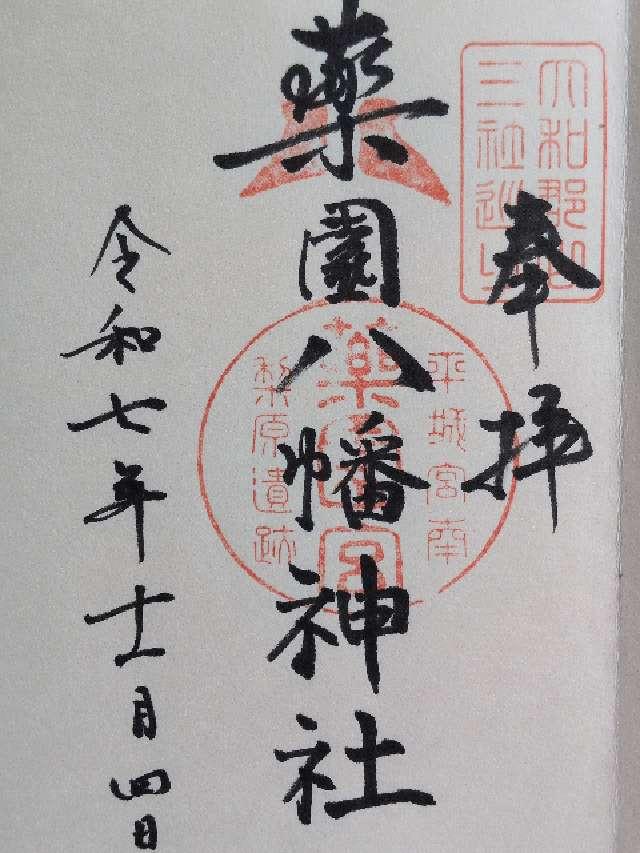 奉拝
大和郡山
三社巡り
薬園八幡神社
平城宮南
薬園宮
梨原遺跡
令和七年十一月四日